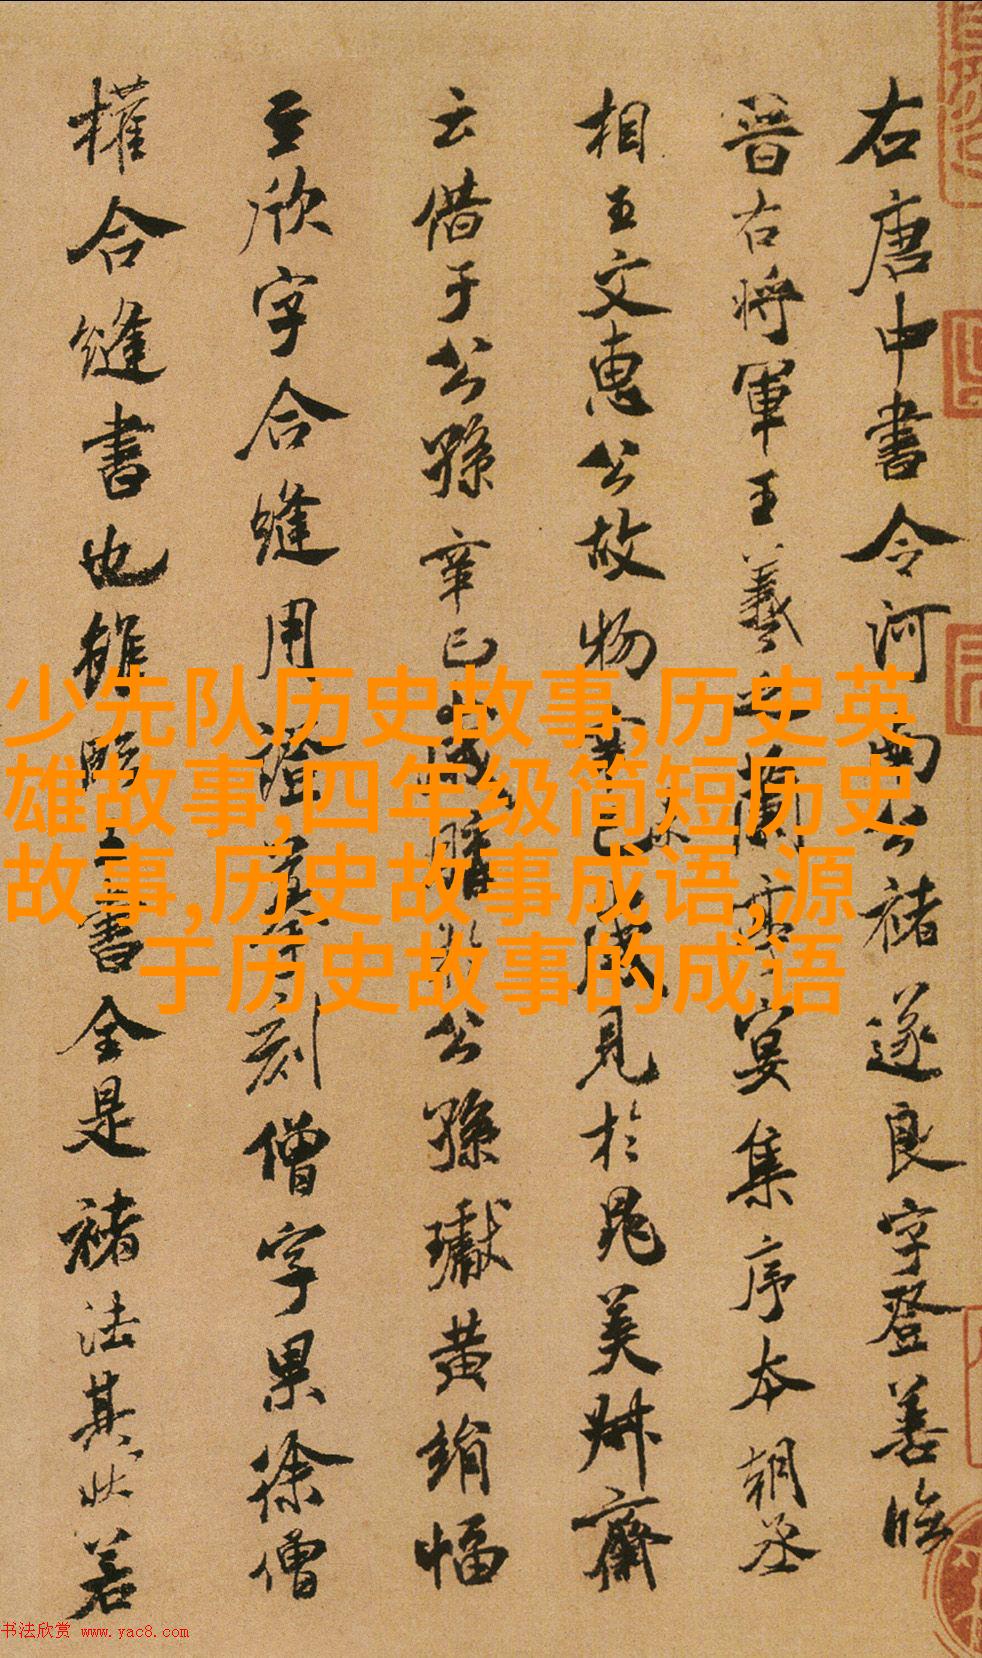 右唐中書令河南公褚遂良字登善臨
晉右將軍王羲之蘭亭宴集序本朝丞
相王文惠公故物辛巳歲見於晁美叔齋
云借于公孫辛巳歲購於公孫瓛黃絹幅
至欣字合縫用證摹刻僧字果徐僧
權合縫書也雖臨王書全是褚法其狀若
少先队历史故事,历史英
雄故事,四年级简短历史
故事,历史故事成语,源
于历史故事的成语
书法欣赏 www.yac8.com